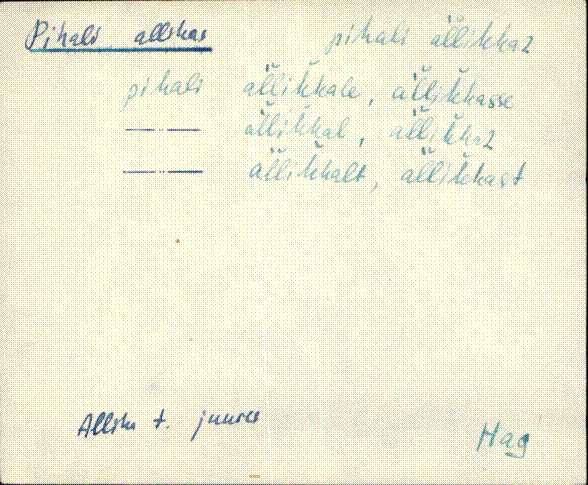 Pihali allikas pihali ällikkaz
pihali ällikkale, ällikkasse
—·— ällikkal, ällikkaz
—·— ällikkalt, ällikkast
Alliku t. juures
Hag